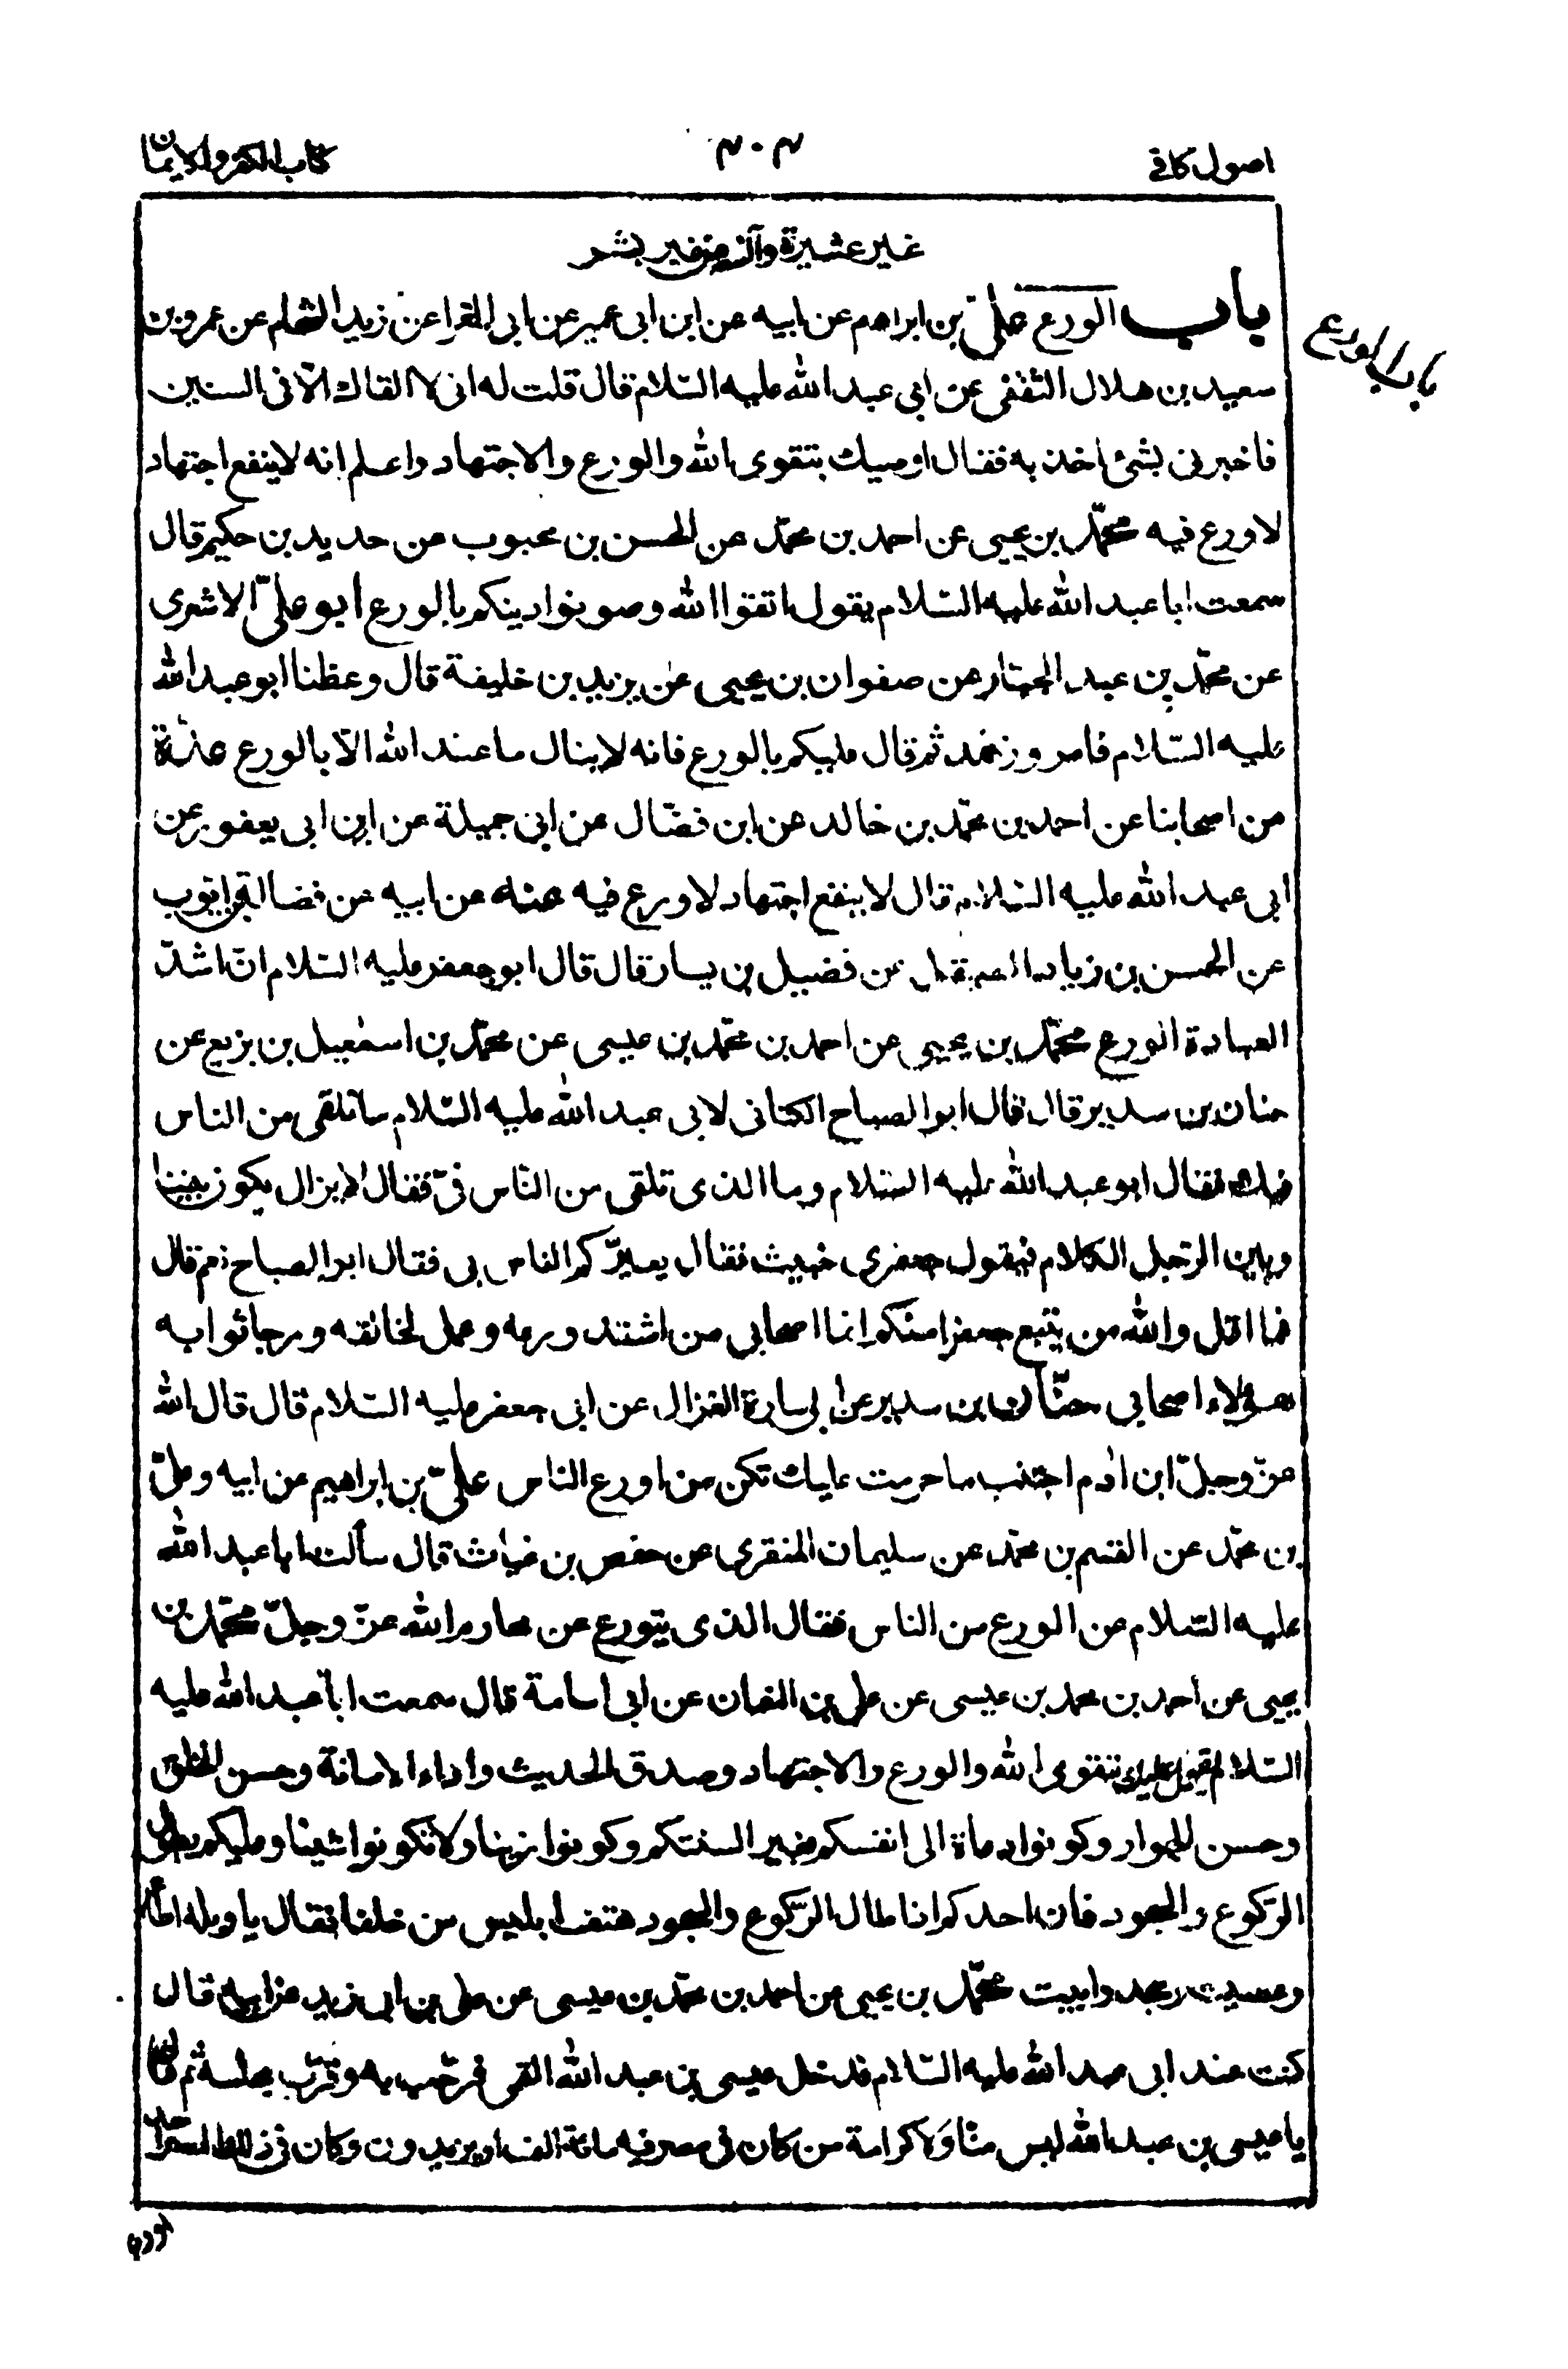 اصول كافے
٣٠٣
كتاب الكفر والايمان
غير عشيرة وآنسه من غير بشر
باب الورع
باب الورع علىّ بن ابراهيم عن ابيه عن ابن ابى عمير عن ابى المغرا عن زيد الشحام عن عمرو بن
سعيد بن هلال الثقفى عن ابى عبد الله عليه السّلام قال قلت له انى لا القاك الّا فى السنين
فاخبرنى بشئ اخذ به فقال اوصيك بتقوى الله والورع والاجتهاد واعلم انه لا ينفع اجتهاد
لا ورع فيه محمّد بن يحيى عن احمد بن محمّد عن الحسن بن محبوب عن حديد بن حكيم قال
سمعت ابا عبد الله عليه السّلام يقول اتقوا الله وصونوا دينكم بالورع ابو علىّ الاشعرى
عن محمّد بن عبد الجبّار عن صفوان بن يحيى عن يزيد بن خليفة قال وعظنا ابو عبد الله
عليه السّلام فامر وزهّد ثم قال عليكم بالورع فانه لا ينال ما عند الله الّا بالورع عدّة
من اصحابنا عن احمد بن محمّد بن خالد عن ابن فضّال عن ابى جميلة عن ابن ابى يعفور عن
ابى عبد الله عليه السّلام قال لا ينفع اجتهاد لا ورع فيه عنه عن ابيه عن فضالة بن ايّوب
عن الحسن بن زياد الصيقل عن فضيل بن يسار قال قال ابو جعفر عليه السّلام انّ اشدّ
العبادة الورع محمّد بن يحيى عن احمد بن محمّد بن عيسى عن محمّد بن اسمٰعيل بن بزيع عن
حنان بن سدير قال قال ابو الصباح الكنانى لابى عبد الله عليه السّلام ما نلقى من الناس
فيك فقال ابو عبد الله عليه السّلام وما الذى تلقى من النّاس فىّ فقال لا يزال يكون بيننا
وبين الرّجل الكلام فيقول جعفرى خبيث فقال يعيّركم الناس بى فقال ابو الصباح نعم قال
فما اقل والله من يتبع جعفرا منكم انما اصحابى من اشتد ورعه وعمل لخالقه ورجا ثوابه
هؤلاء اصحابى حنّان بن سدير عن ابى سارة الغزال عن ابى جعفر عليه السّلام قال قال الله
عزّ وجلّ ابن اٰدم اجتنب ما حرمت عليك تكن من اورع الناس علىّ بن ابراهيم عن ابيه وعلىّ
بن محمّد عن القٰسم بن محمّد عن سليمان المنقرى عن حفص بن غياث قال سألت ابا عبد الله
عليه السّلام عن الورع من الناس فقال الذى يتورع عن محارم الله عزّ وجلّ محمّد بن
يحيى عن احمد بن محمد بن عيسى عن على بن النعمان عن ابى اسامة قال سمعت ابا عبد الله عليه
السّلام يقول عليك بتقوى الله والورع والاجتهاد وصدق الحديث واداء الامانة وحسن الخلق
وحسن الجوار وكونوا دعاة الى انفسكم بغير السنتكم وكونوا زينا ولا تكونوا شينا وعليكم بطول
الرّكوع والسجود فان احدكم اذا طال الرّكوع والسجود هتف ابليس من خلفه فقال يا ويله اطاع
وعصيت وسجد وابيت محمّد بن يحيى عن احمد بن محمّد بن عيسى عن على بن ابى زيد عن ابيه قال
كنت عند ابى عبد الله عليه السّلام فدخل عيسى بن عبد الله القمى فرحّب به وقرّب مجلسه ثم قال
يا عيسى بن عبد الله ليس منّا ولا كرامة من كان فى مصر فيه مائة الف او يزيدون وكان فى ذلك المصر احد
اورع